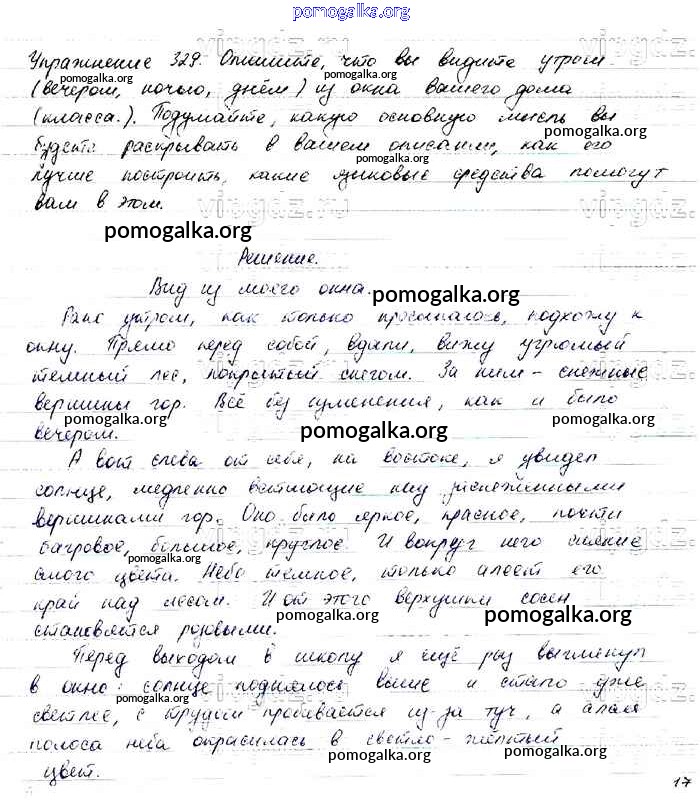 pomogalka.org
Упражнение 329. Опишите, что вы видите утром
pomogalka.org pomogalka.org
(вечером, ночью, днём) из окна вашего дома
(класса.). Подумайте, какую основную мысль вы
pomogalka.org pomogalka.org
будете раскрывать в вашем описании, как его
pomogalka.org
лучше построить, какие языковые средства помогут
вам в этом.
pomogalka.org
Решение.
Вид из моего окна.
pomogalka.org
Рано утром, как только просыпаюсь, подхожу к
окну. Прямо перед собой, вдали, вижу угрюмый
темный лес, покрытый снегом. За ним - снежные
вершины гор. Всё без изменения, как и было
pomogalka.org pomogalka.org
вечером.
pomogalka.org
А вот слева от себя, на востоке, я увидел
солнце, медленно встающие над заснеженными
вершинами гор. Оно было яркое, красное, почти
багровое, большое, круглое. И вокруг него сияние
pomogalka.org
алого цвета. Небо темное, только алеет его
край над лесом. И от этого верхушки сосен
pomogalka.org pomogalka.org
становятся розовыми.
Перед выходом в школу я ещё раз выглянул
в окно: солнце поднялось выше и стало уже
pomogalka.org
светлее, с трудом пробивается из-за туч, а алая
полоса неба окрасилась в светло-жёлтый
pomogalka.org
цвет.
17